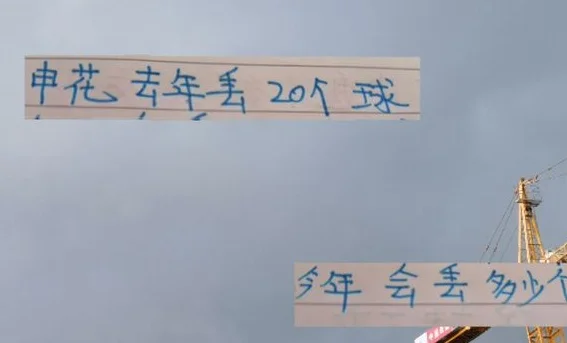 申花去年丢20个球
今年会丢多少个